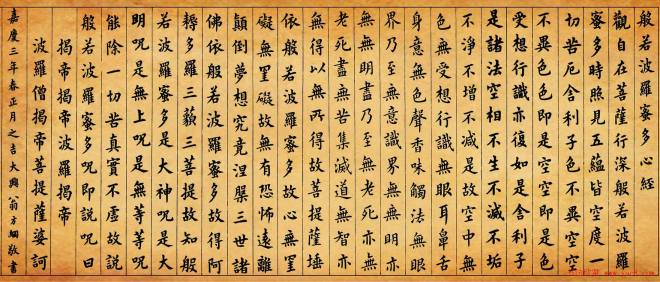 般若波羅蜜多心經
觀自在菩薩行深般若波羅
蜜多時照見五蘊皆空度一
切苦厄舍利子色不異空空
不異色色即是空空即是色
受想行識亦復如是舍利子
是諸法空相不生不滅不垢
不淨不增不減是故空中無
色無受想行識無眼耳鼻舌
身意無色聲香味觸法無眼
界乃至無意識界無無明亦
無無明盡乃至無老死亦無
老死盡無苦集滅道無智亦
無得以無所得故菩提薩埵
依般若波羅蜜多故心無罣
礙無罣礙故無有恐怖遠離
顛倒夢想究竟涅槃三世諸
佛依般若波羅蜜多故得阿
耨多羅三藐三菩提故知般
若波羅蜜多是大神呪是大
明呪是無上呪是無等等呪
能除一切苦真實不虛故說
般若波羅蜜多呪即說呪曰
揭帝揭帝波羅揭帝
波羅僧揭帝菩提薩婆訶
嘉慶三年春正月之吉大興翁方綱敬書